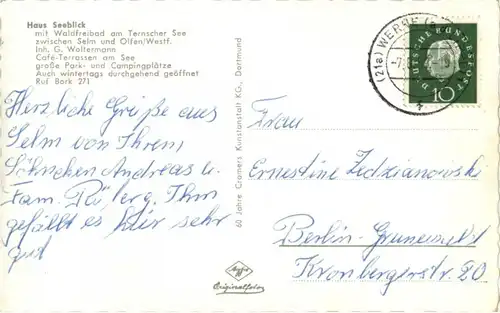 Haus Seeblick
mit Waldfreibad am Ternscher See
zwischen Selm und Olfen/Westf.
Inh. G. Woltermann
Café-Terrassen am See
große Park- und Campingplätze
Auch wintertags durchgehend geöffnet
Ruf Bork 271
Herzliche Grüße aus
Selm von Ihrem
Söhnchen Andreas u.
Fam. Ihm
gefällt es hier sehr
gut
60 Jahre Cramers Kunstanstalt KG., Dortmund
Agfa
Originalfoto
(21a) WERNE
DEUTSCHE BUNDESPOST
10
Frau
Ernestine Zedzianowski
Berlin-Grunewald
Kronbergerstr. 20